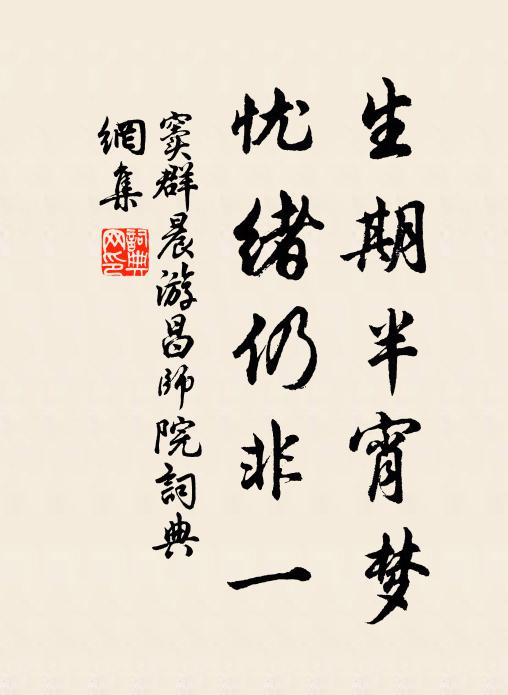 生期半宵梦
忧绪仍非一
窦群晨游昌师院詞典
網集
詞典
网印